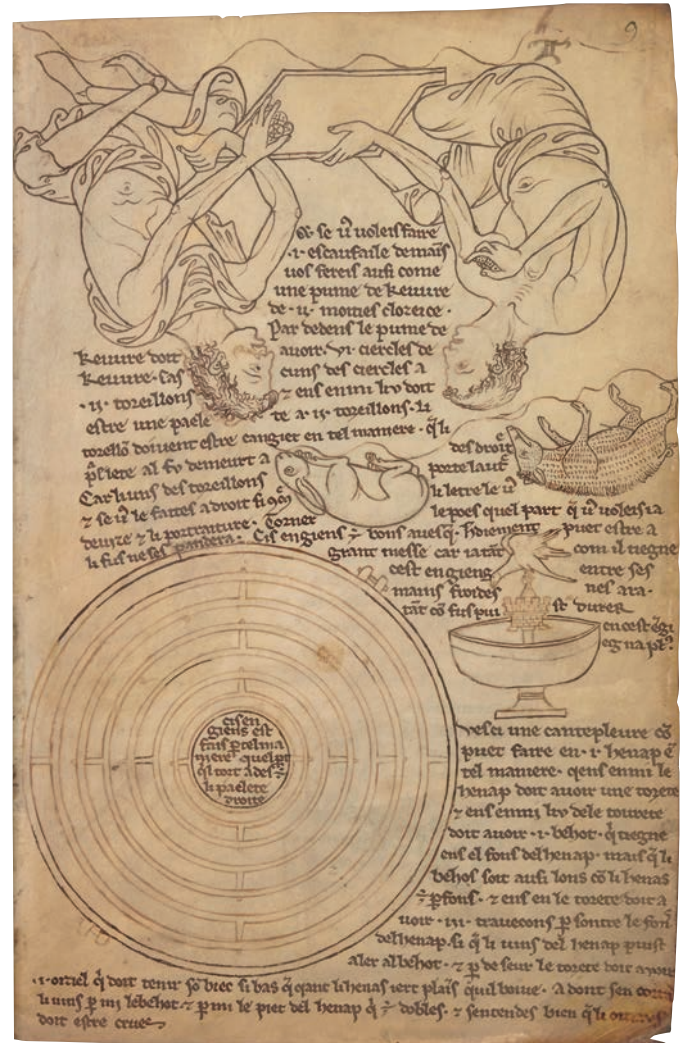 9
⁊ se uͦ uoleis faire
·i· escaufaile de mains
uos fereis ausi come
une pume de keuure
de ·ii· moities clozeice ·
Par dedens le pume de
keuure doit auoir ·vi· ciercles de
keuure · cas cuns des ciercles a
·ii· toreillons ⁊ ens enmi liv doit
estre une paele te a ·ii· toreillons · li
torellō doiuent estre cangiet en tel maniere · q̄ li
paelete al fv demeurt a des droit
Car li uns des toreillons porte laut
⁊ se uͦ le faites a droit si 9 li letre le uͦ
deuize ⁊ li portraiture · Torner le poes quel part q̄ uͦ uoleis ia
li fus ne ses pandera · Cis engiens ÷ bons a uesq̄ · hdiement puet estre a
grant messe car ia tāt com il tiegne
cest engieng entre ses
mains froides nes ara ·
tāt cō fus puist durer
en cest ēgi
eg na pl9
cis en
giens est
fais p tel ma
niere quel pt
qil tort ades ÷
li paelete
droite
Vesci une cantepleure cō
puet faire en · i · henap ē
tel maniere · qens enmi le
henap doit auoir une torete
⁊ ens enmi liv de le tourete
doit auoir · i · behot · q̄ tiegne
ens el fons del henap · mais q̄ li
behos soit ausi lons cō li henas
÷ pfons · ⁊ ens en le torete doit a
uoir · iii · trauecons p sontre le fon
del henap · si q̄ li uins del henap puist
aler al behot · ⁊ p de seur le torete doit auoir
·i· oiziel q̄ doit tenir sō biec si bas q̄ qant li henas iert plais quil boiue · A dont sen corra
li uins p mi le behot ⁊ p mi le piet del henap q̄ ÷ dobles · ⁊ sentendes bien q̄ li oiziaus
doit estre crues